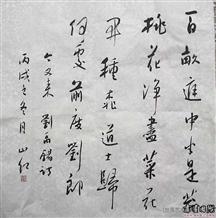 百亩庭中半是苔
桃花净尽菜花
开種桃道士歸
何處前度劉郎
今又来 劉禹錫詩
丙戌年冬月 山红